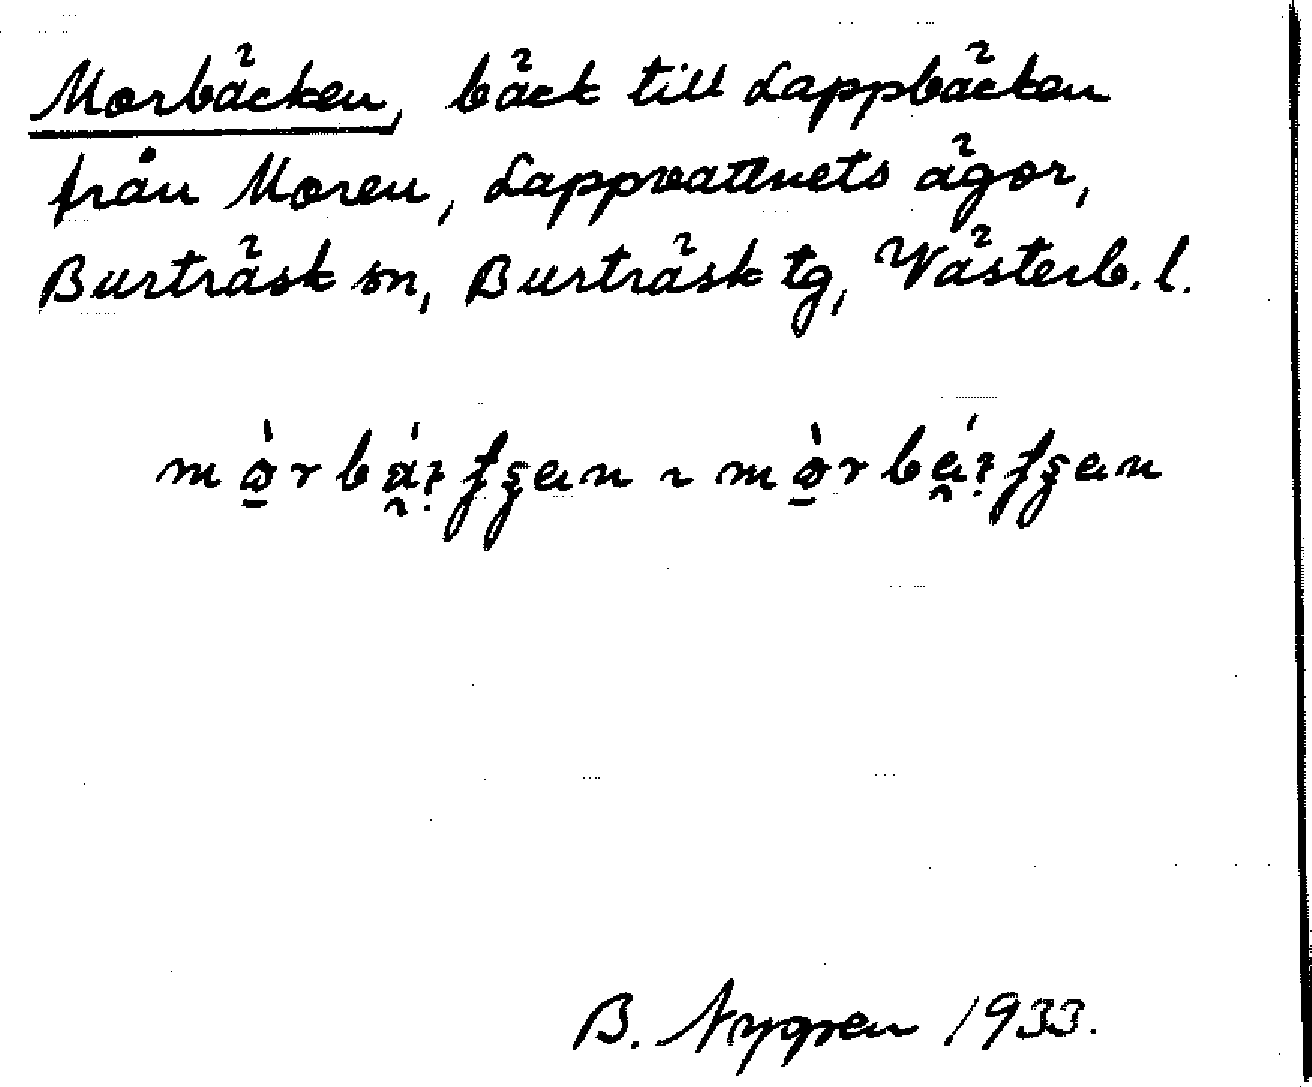 Morbäcken, bäck till Lappbäcken
från Moren, Lappvattnets ägor,
Burträsk sn, Burträsk tg, Västerb. l.
B. Nygren 1933.